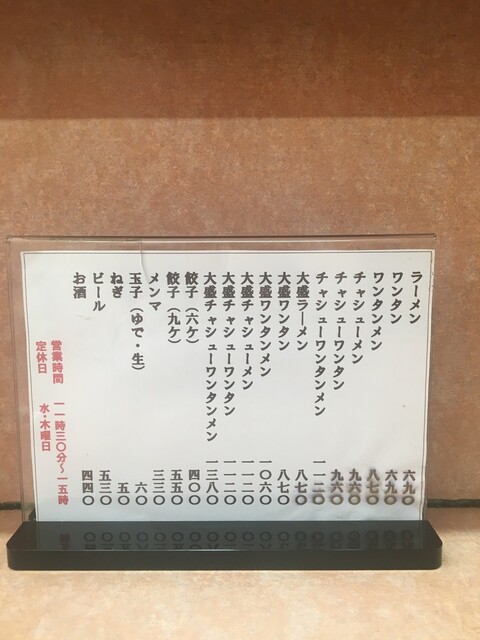 ラーメン 六九〇
ワンタン 六九〇
ワンタンメン 八七〇
チャシューメン 九六〇
チャシューワンタン 九六〇
チャシューワンタンメン 一一二〇
大盛ラーメン 八七〇
大盛ワンタン 八七〇
大盛ワンタンメン 一〇六〇
大盛チャシューメン 一一二〇
大盛チャシューワンタン 一一二〇
大盛チャシューワンタンメン 一三八〇
餃子（六ケ） 四〇〇
餃子（九ケ） 五五〇
メンマ 三三〇
玉子（ゆで・生） 六〇
ねぎ 五〇
ビール 五三〇
お酒 四四〇
営業時間 一一時三〇分～一五時
定休日 水・木曜日